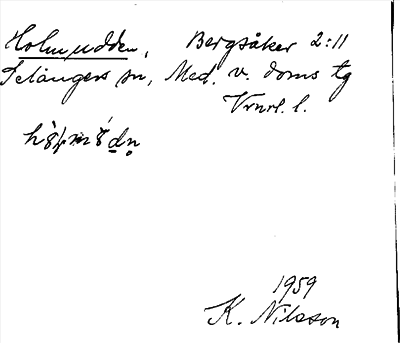 Holmudden, Bergsåker 2:11
Selångers sn, Med. v. doms tg
Vrnrl. l.
1959
K. Nilsson